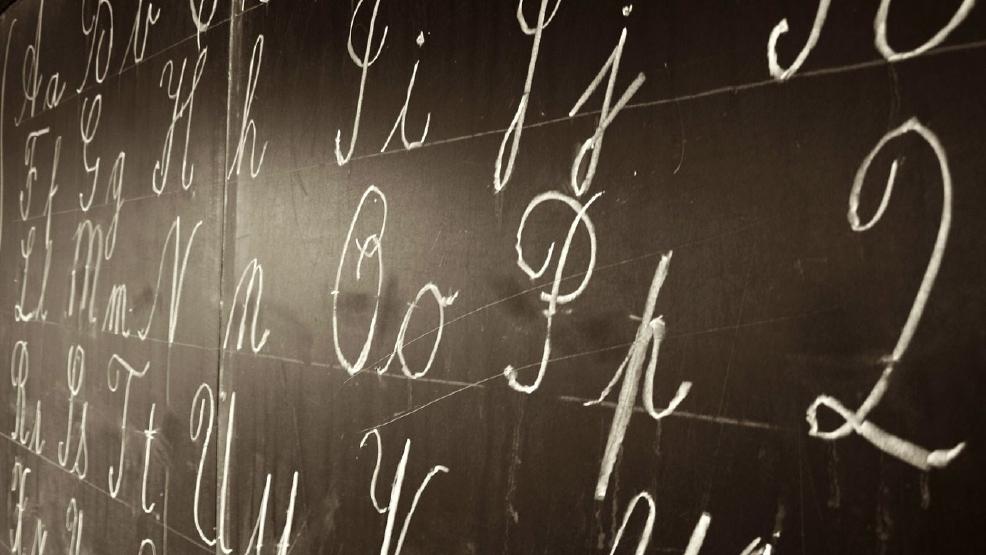 Aa Bb
Ff Gg Hh Ii Jj
Ll Mm Nn Oo Pp Q
Rr Ss Tt Uu V
Xx